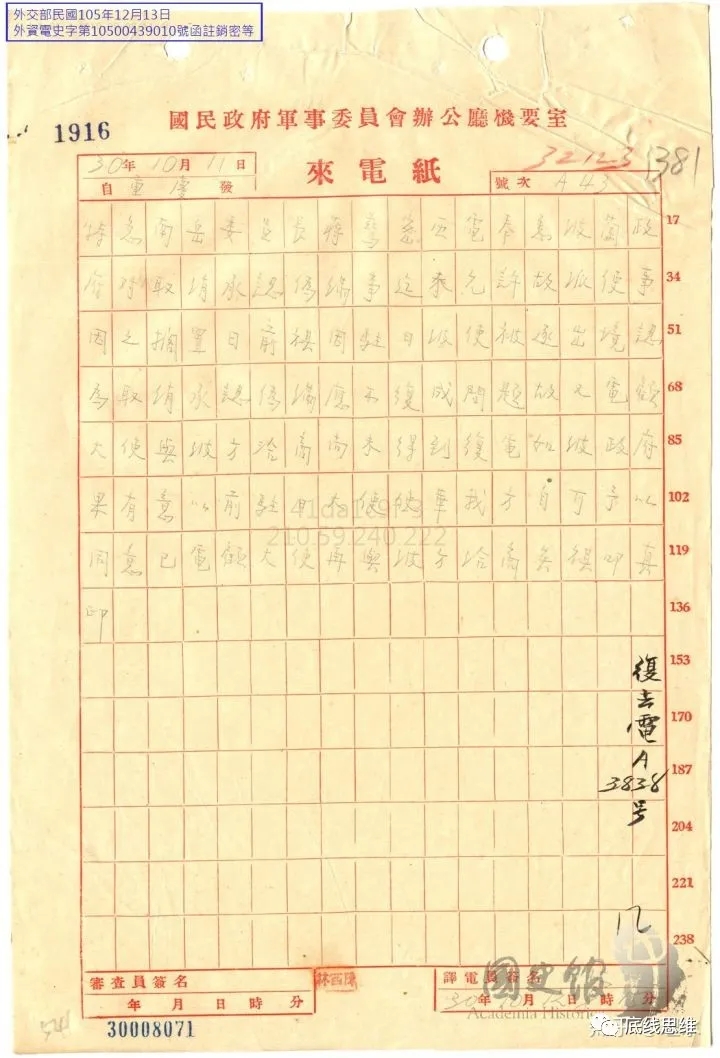 外交部民國105年12月13日
外資電史字第10500439010號函註銷密等
國民政府軍事委員會辦公廳機要室
1916
32123
1381
30年10月11日
自重慶發
來電紙
號次 A43
特急南岳委員長蔣 密 電奉悉波蘭政 17
府對取消承認偽滿事迄未允許故派使事 34
因之擱置日前 因駐日波使被逐出境認 51
為取消承認偽滿應不復成問題故又電顧 68
大使與波方洽商尚未得到復電如波政府 85
果有意以前駐日大使使華我方自可予以 102
同意已電顧大使再與波方洽商 祺叩真 119
印 136
153
170
187
204
221
238
復去電A3838号
41da1c9f-3
210.59.240.222
審查員簽名
年 月 日 時 分
陳西林
譯電員簽名
30年10月12日 時 分
30008071
541
國史館
Academia Historica
底线思维